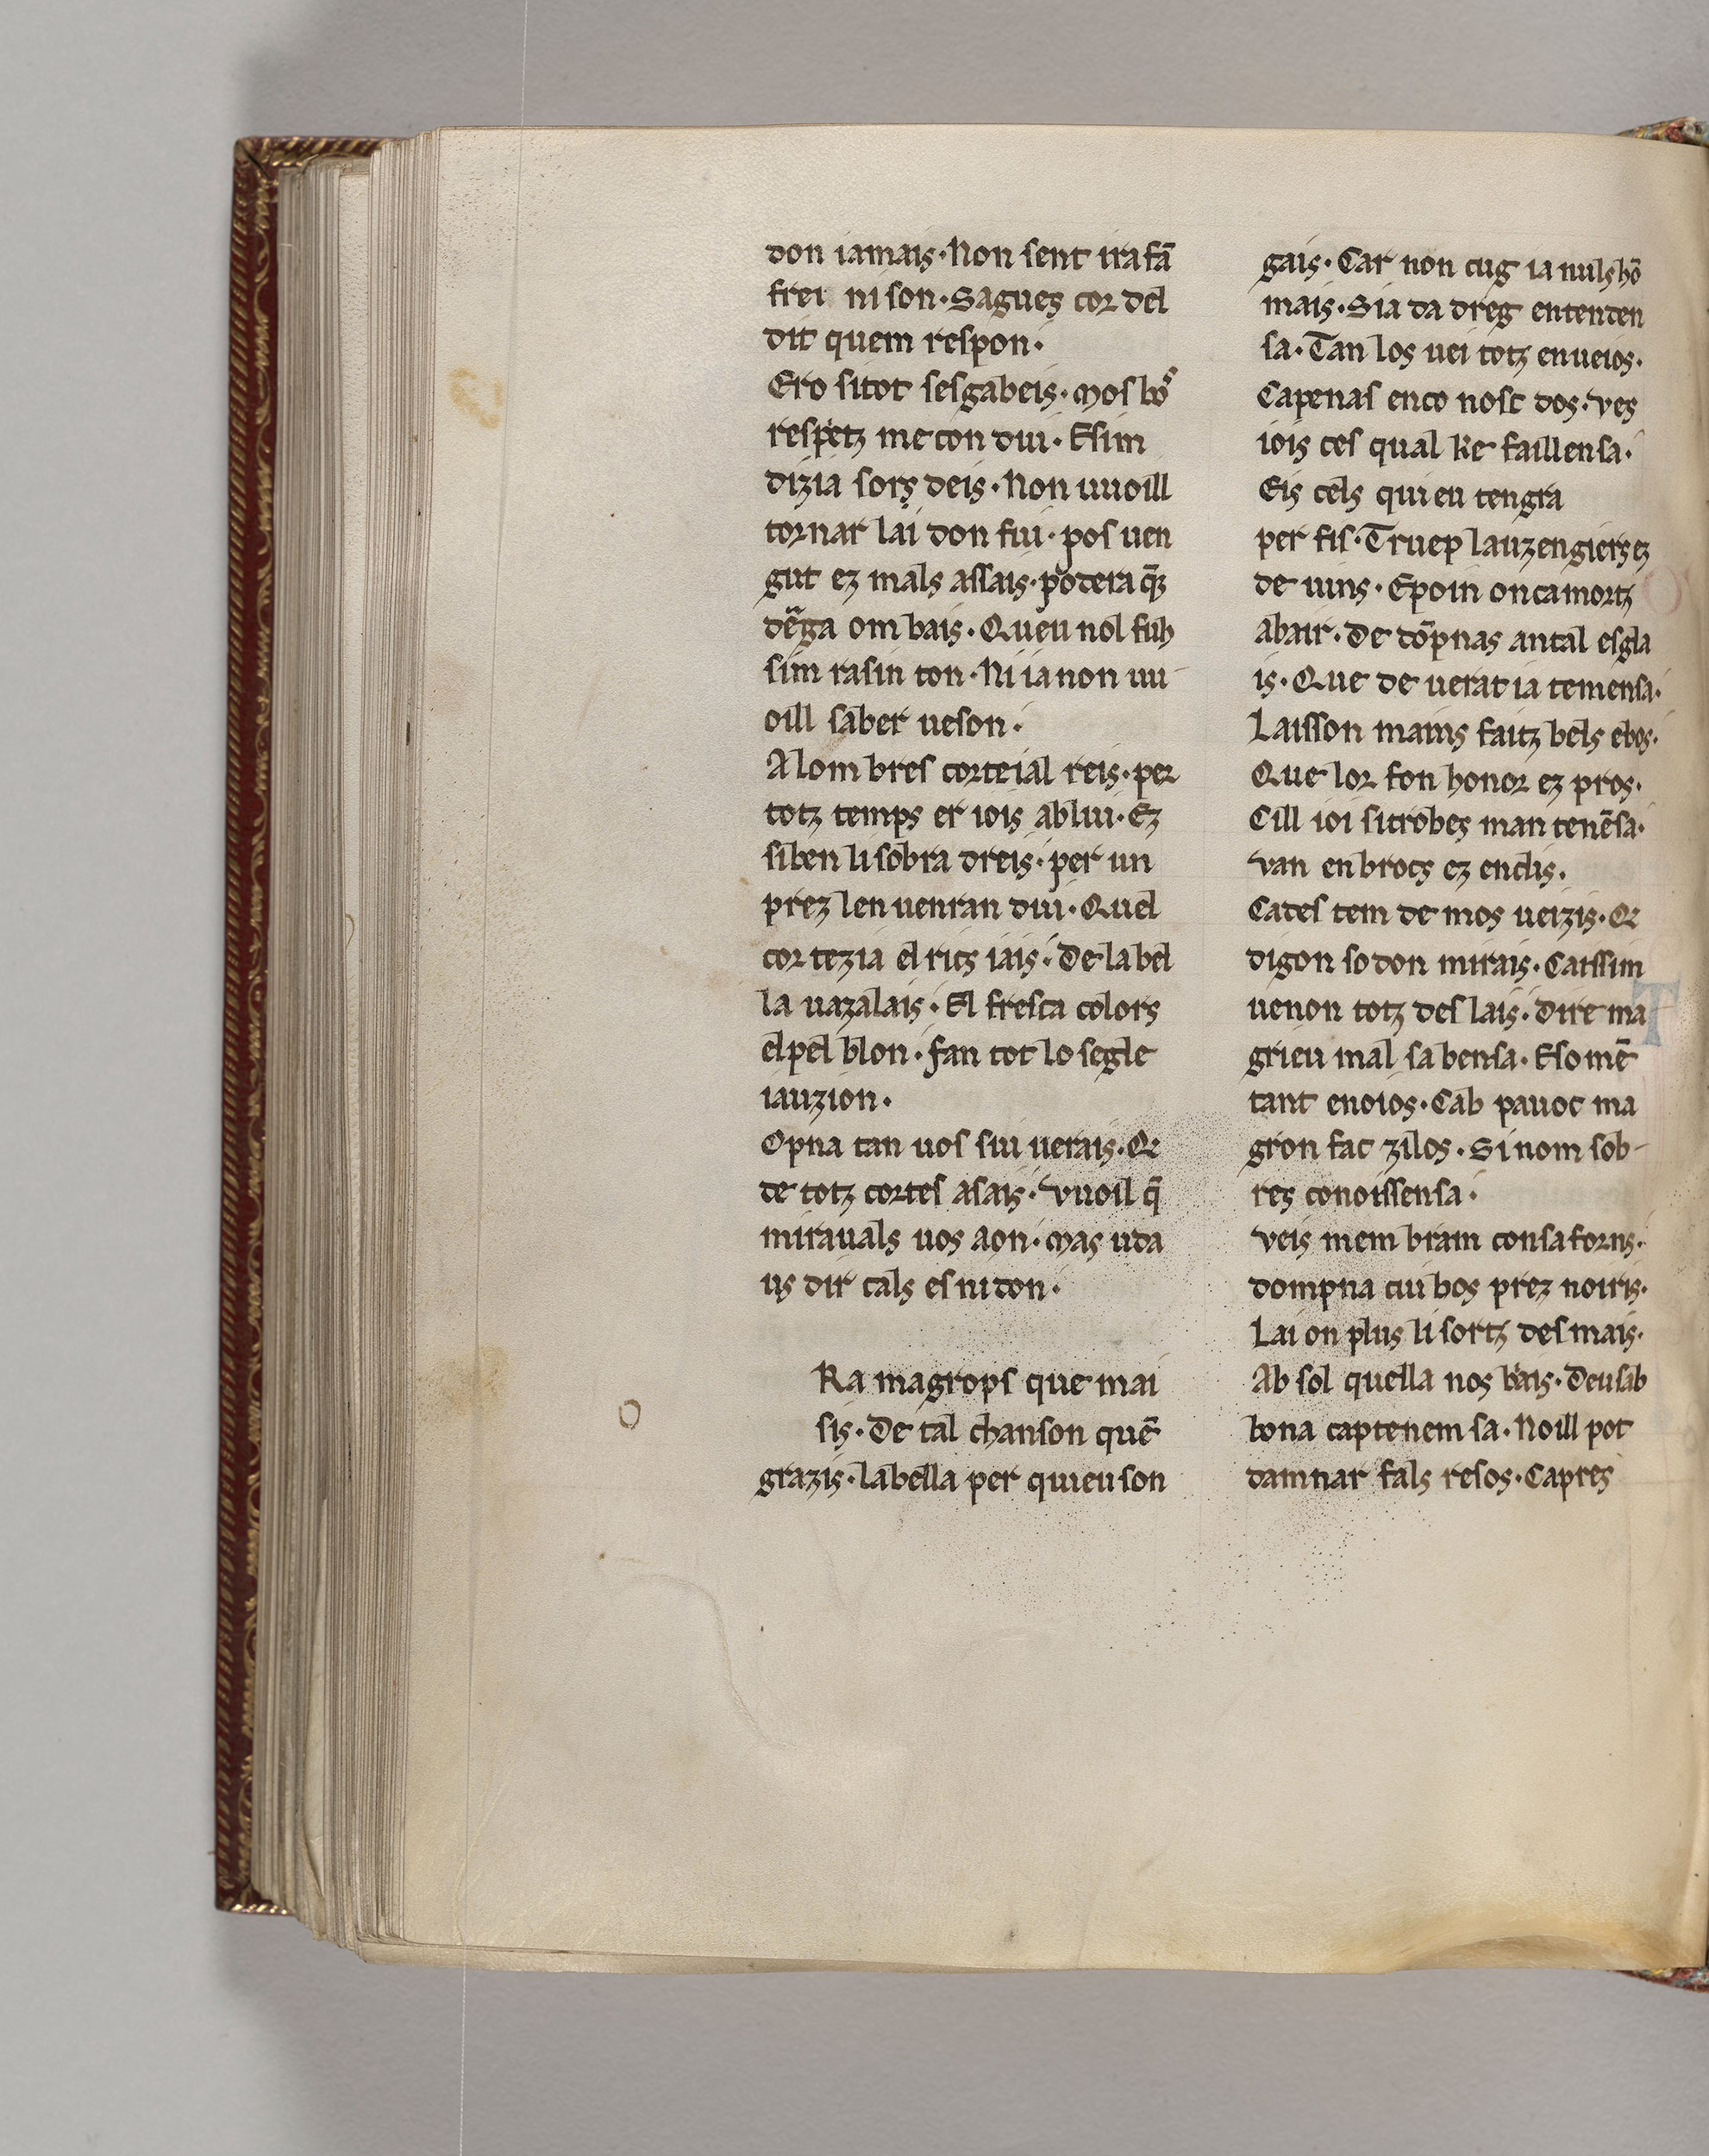 don iamais·Non sent irafā
frei ni son·Sagues cor del
dit quem respon·
Ero sitot sesgabeis·mos bōs
respetz me con dui·Esim
dizia sors deis·Non uuoill
tornar lai don fui·pos uen
gut ez mals assais·potera q̄z
dēga om bais·Queu nol fuh
sim rasin ton·Ni ia non uu
oill saber ueson·
Alom bres corteial reis·per
totz temps er iois ablui·Ez
siben li sobra dreis·per un
prez len uenran dui·Quel
cor tezia el rics iais·De la bel
la uazalais·El fresca colors
elpel blon·fan tot lo segle
iauzion·
Opna tan uos sui uerais·Qe
de totz cortes asais·Vuoil q̄
mirauals uos aon·Mas uda
us dir cals es ni don·
Ra magrops que mai
sis·De tal chanson quē
grazis·labella per quieu son
gais·Car non cug ia nuls hō
mais·Sia da dreg ententen
sa·Tan los uei totz enueios·
Capenas enco nosc dos·Ves
iois ces qual ke faillensa·
Eis cels qui eu tengra
per fis·Truep lauzengiers ez
de uins·Epoin oncamortz
abair·De dōpnas antal esgla
is·Que de uerat ia temensa·
Laisson mains faitz bels ebos·
Que lor fon honor ez pros·
Cill ioi si trobes man tenēsa·
Van en brocs ez enclis·
Cades tem de mos ueizis·Qe
digon so don mirais·Caissim
uenon totz des lais·Dire ma
T
grieu mal sa bensa·Eso mē
tant enoios·Cab pauoc ma
gron fac zilos·Si nom sob-
res conoissensa·
Veis mem bram consaforns·
dompna cui bos prez noiris·
Lai on plus li sortz des mais·
Ab sol quella nos bais·Deusab
bona captenem sa·Noill pot
damnar fals resos·Capres